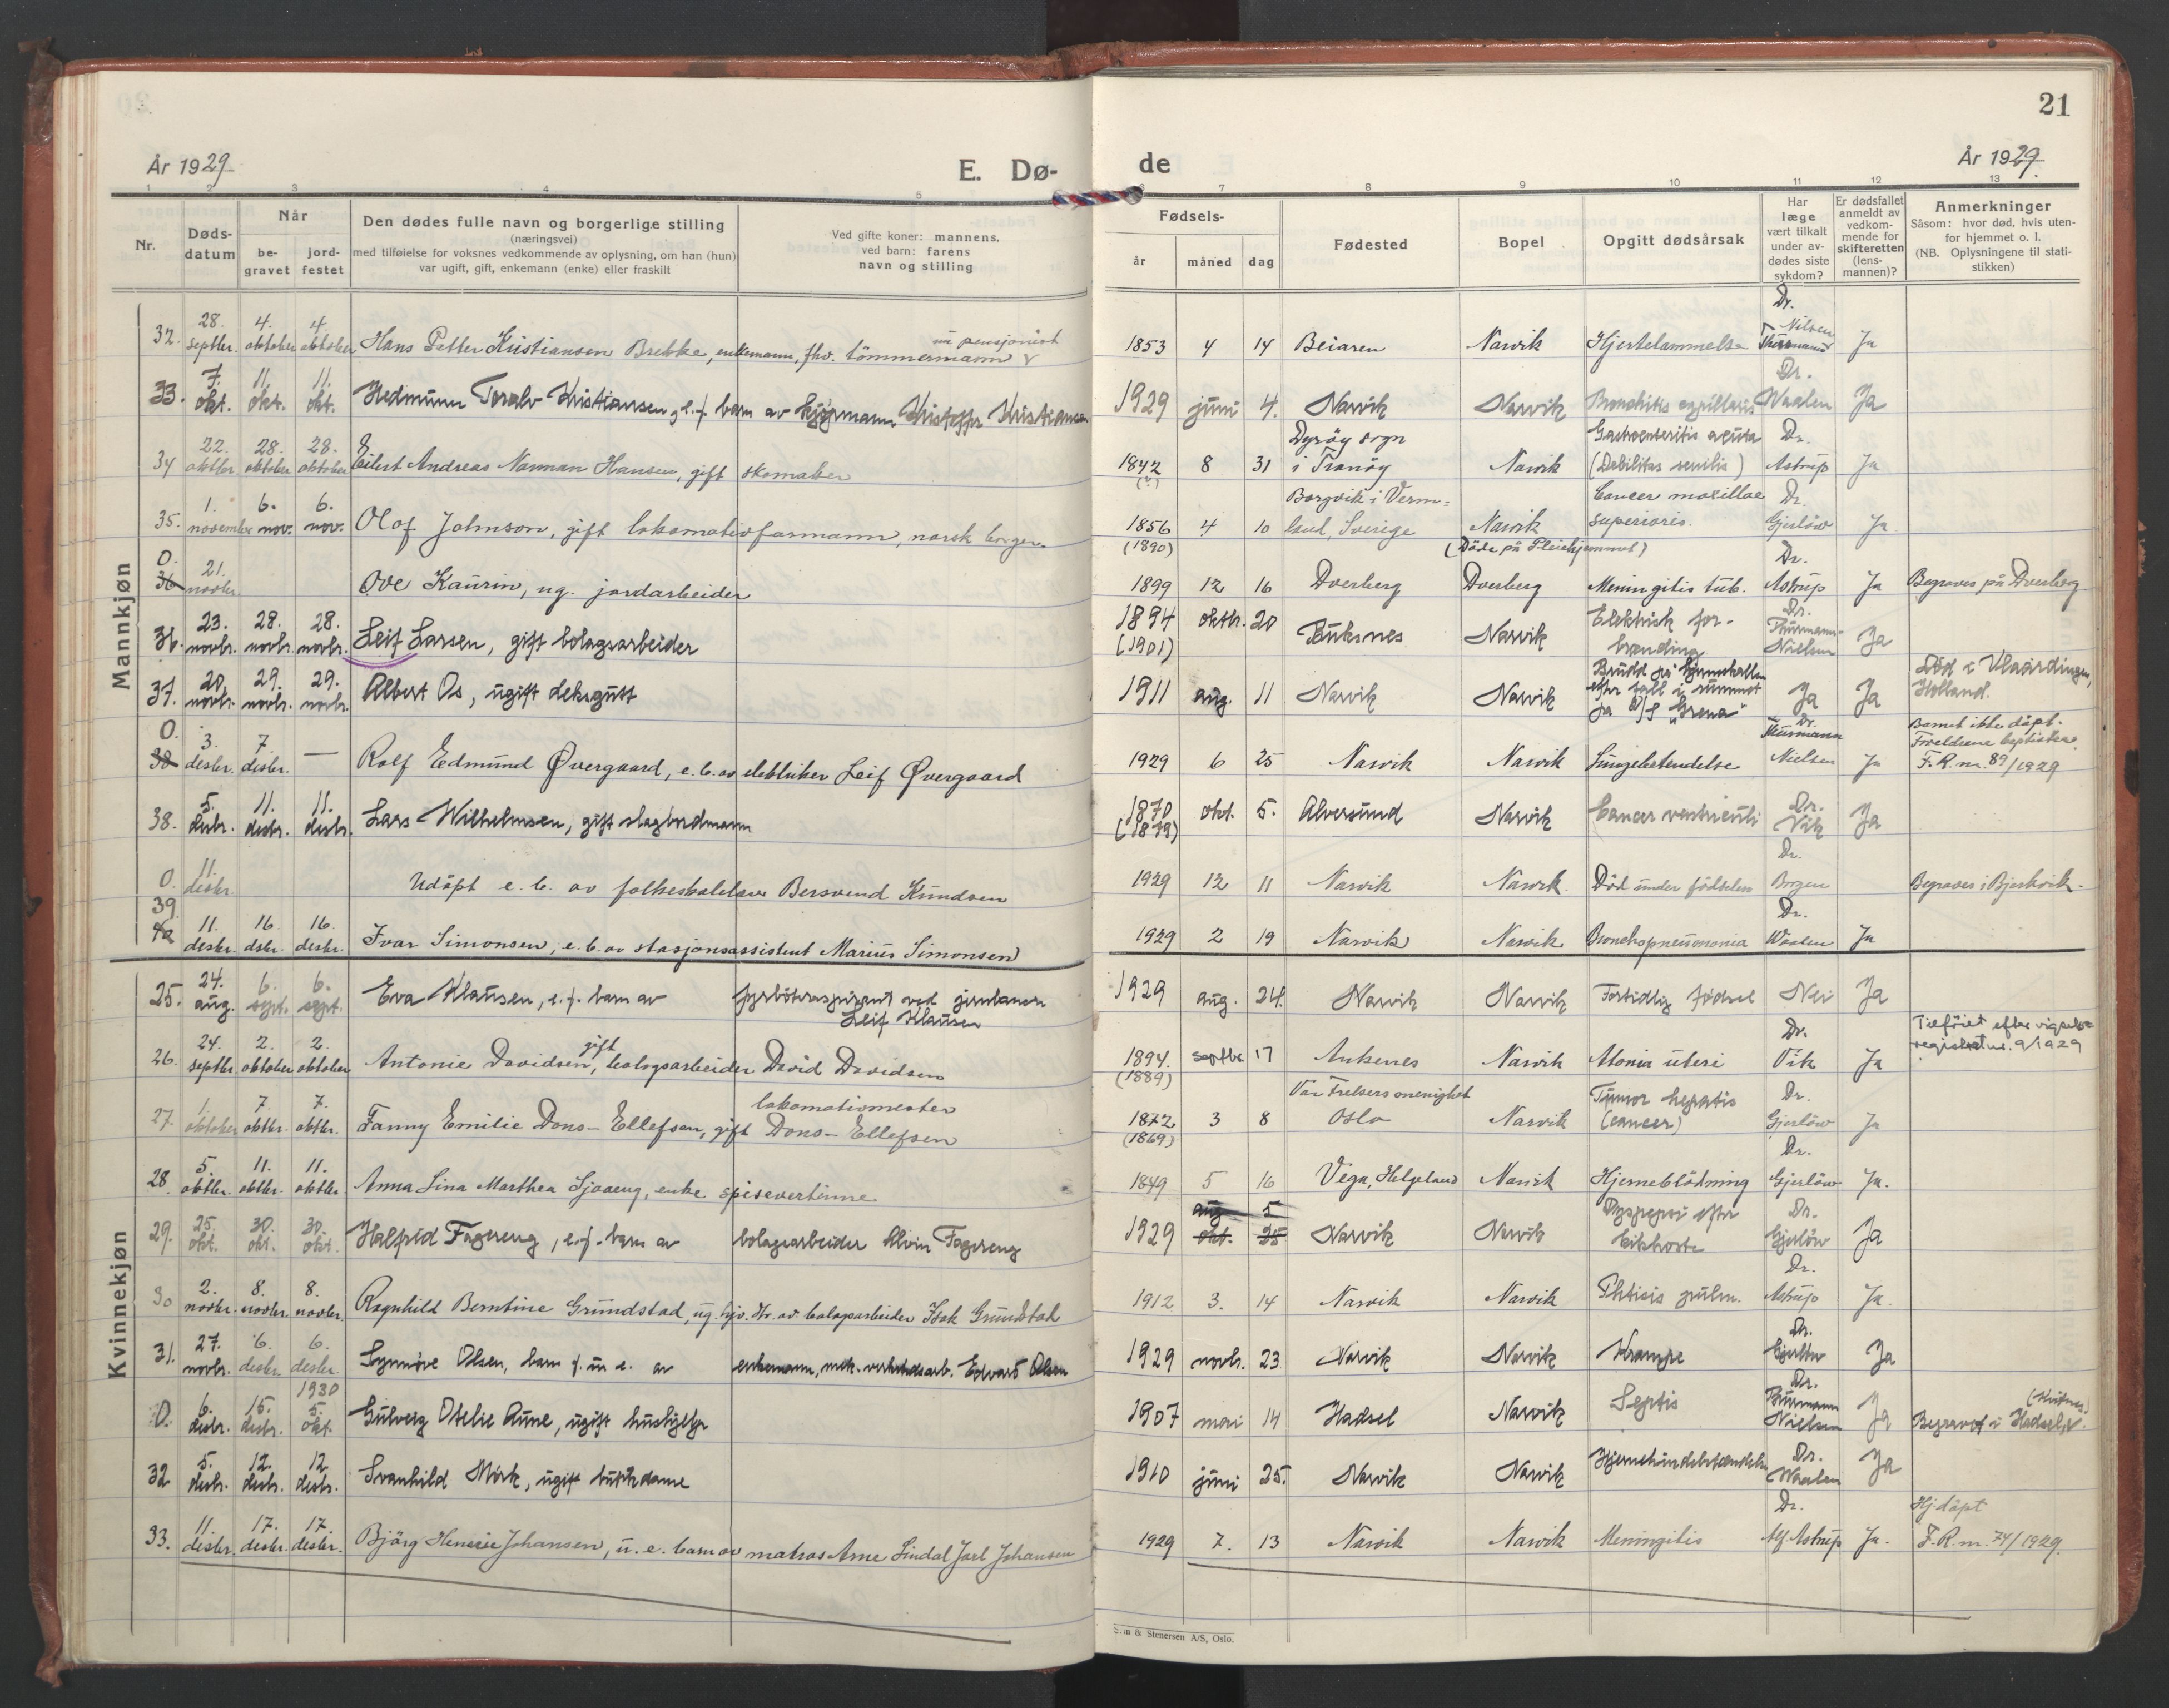 21
År 1929
E. Dø-
de
År 1929.
1 2 3 4 5 6 7 8 9 10 11 12 13
Nr.
Døds-
datum
Når
be-
gravet
jord-
festet
Den dødes fulle navn og borgerlige stilling
(næringsvei)
med tilføielse for voksnes vedkommende av oplysning, om han (hun)
var ugift, gift, enkemann (enke) eller fraskilt
Ved gifte koner: mannens,
ved barn: farens
navn og stilling
Fødsels-
år måned dag
Fødested
Bopel
Opgitt dødsårsak
Har
læge
vært tilkalt
under av-
dødes siste
sykdom?
Er dødsfallet
anmeldt av
vedkom-
mende for
skifteretten
(lens-
mannen)?
Anmerkninger
Såsom: hvor død, hvis uten-
for hjemmet o. l.
(NB. Oplysningene til stati-
stikken)
Mannkjøn
32. 28. septbr. 4. oktober 4. oktober Hans Petter Kristiansen Brekke, enkemann, fhv. tömmermann nu pensjonist 1853 4 14 Beiaren Narvik Hjertelammelse Dr. Thurmann Nilsen Ja
33. 7. okt. 11. okt. 11. okt. Hedmunn Toralv Kristiansen, e.f. barn av Kristoffer Kristiansen 1929 juni 4. Narvik Narvik Bronchitis capillaris Dr. Waalen Ja
34 22. oktbr. 28. oktober 28. oktober Eilert Andreas Norman Hansen, gift skomaker 1842 (?) 8 31 Dyröy sogn i Tranöy Narvik Gastroenteritis acuta (Debilitas senilis) Dr. Astrup Ja
35. 1. november 6. nov. 6. nov. Olof Johnson, gift lokomotivformann, norsk borger. 1856 4 10 Borgvik i Verm=land, Sverige Narvik Cancer maxillae superioris. Dr. Gjerlöw Ja
0. 36 21. novbr. Ove Kaurin, ug. jordarbeider (1890) 1899 12 16 Dverberg Dverberg (Döde på Pleiehjemmet) Meningitis tub. Dr. Astrup Ja Begraves på Dverberg
36. 23. novbr. 28. novbr. 28. novbr. Leif Larsen, gift bolagsarbeider 1894 (1901) oktbr. 20 Buksnes Narvik Elektrisk for-brending Dr. Thurmann-Nielsen Ja
37. 20. novbr. 29. novbr. 29. novbr. Albert Os, ugift deksgutt 1911 aug. 11 Narvik Narvik Brudd på hjerneskallen efter fall i rummet på D/S "Grena" Ja Ja Död i Vlaardingen, Holland.
0. 38 3. desbr. 7. desbr. — Rolf Edmund Øvergaard, e.b. av elektriker Leif Øvergaard 1929 6 25 Narvik Narvik Lungebetendelse Dr. Thurmann Nielsen Ja Barnet ikke döpt. Foreldrene baptister. F.R. nr. 89/1929
38. 5. desbr. 11. desbr. 11. desbr. Lars Wilhelmsen, gift 1870 (1879) okt. 5. Alversund Narvik Cancer ventriculi Dr. Vik Ja
0. 11. desbr. Udöpt e.b. av folkeskolelærer Bersvend Knudsen 1929 12 11 Narvik Narvik. Död under födselen Dr. Borgen Begraves i Bjerkvik.
39 40 11. desbr. 16. desbr. 16. desbr. Ivar Simonsen, e.b. av stasjonsassistent Marius Simonsen 1929 2 19 Narvik Narvik Bronchopneumonia Dr. Waalen Ja
Kvinnekjøn
25. 24. aug. 6. sept. 6. sept. Eva Klausen, e.f. barn av fyrböteraspirant ved jernbanen Leif Klausen 1929 aug. 24. Narvik Narvik Fortidlig födsel Nei Ja
26. 24. septbr. 2. oktober 2. oktober Antonie Davidsen, gift bolagsarbeider David Davidsen 1894. (1889) septbr. 17 Ankenes Narvik Atonia uteri Dr. Vik Ja Tilföiet efter vigsels=register nr. 9/1929
27. 1. oktober 7. oktbr. 7. oktbr. Fanny Emilie Dons-Ellefsen, gift lokomotivmester Dons-Ellefsen 1872 (1869) 3 8 Vor Frelsers menighet Oslo Narvik Tumor hepatis (cancer) Dr. Gjerlöw Ja
28. 5. oktbr. 11. oktbr. 11. oktbr. Anna Lina Marthea Sjaaeng, enke spisevertinne 1849 5 16 Vega, Helgeland Narvik Hjerneblödning Dr. Gjerlöw Ja.
29. 25. okt. 30. okt. 30. okt. Halfrid Fagereng, e.f. barn av bolagsarbeider Alvin Fagereng 1929 aug 5 okt. 25 Narvik Narvik Dyspepsi efter kikhoste Dr. Gjerlöw Ja
30 2. novbr. 8. novbr. 8. novbr. Ragnhild Berntine Grundstad, ug. hjv. dtr. av bolagsarbeider Isak Grundstad 1912 3. 14 Narvik Narvik Phtisis pulm. Dr. Astrup Ja.
31. 27. novbr. 6. desbr. 6. desbr. Synnöve Olsen, barn f. u. e. av enkemann, mek. verkstedsarb. Edvard Olsen 1929 novbr. 23 Narvik Narvik Krampe Dr. Gjerlöw Ja
0. 6. desbr. 15. desbr. 1930 5. okt. Gulveig Otelie Aune, ugift hushjelp 1907 mai 14 Hadsel Narvik Sepsis Dr. Thurmann Nielsen Ja Begravet i Hadsel
32 5. desbr. 12. desbr. 12. desbr. Svanhild Mörk, ugift butikdame 1910 juni 25. Narvik Narvik Hjernehindebetændelse Dr. Waalen Ja
33. 11. desbr. 17. desbr. 17. desbr. Björg Henrie Johansen, u.e. barn av matros Arne Lindal Jarl Johansen 1929 7. 13 Narvik Narvik Meningitis Dr. Alf. Astrup Ja. Hj.döpt F.R. nr. 74/1929.
& Stenersen A/S, Oslo.